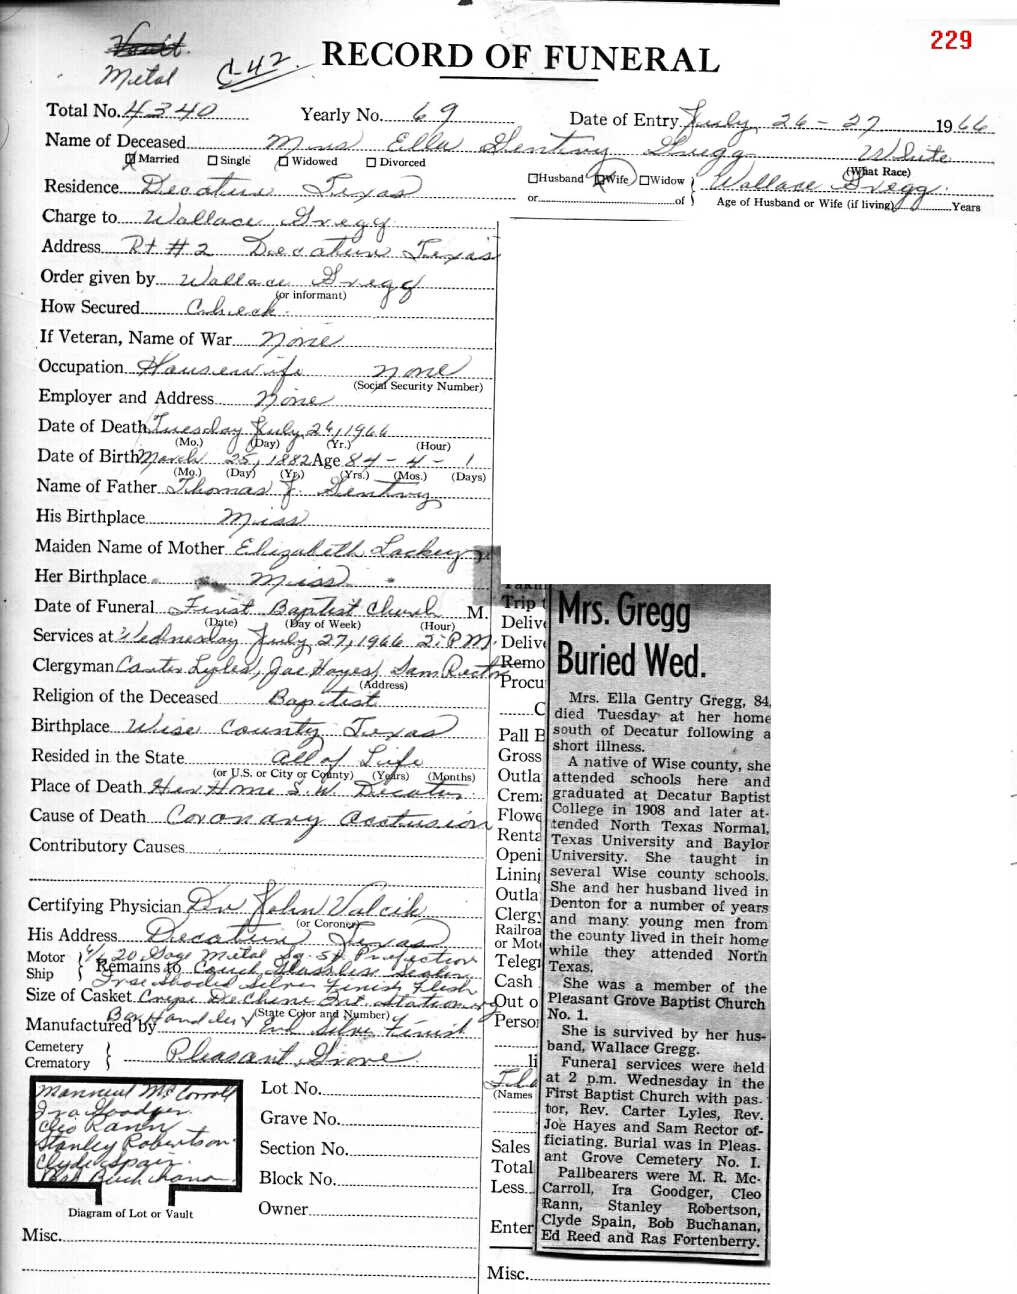 229
Vault.
Metal
C-42
RECORD OF FUNERAL
Total No. 4340 Yearly No. 69 Date of Entry July 26-27 1966
Name of Deceased Mrs Ella Gentry Gregg White
Married Single Widowed Divorced (What Race)
Residence Decatur Texas Husband Wife Widow Wallace Gregg.
or of Age of Husband or Wife (if living) Years
Charge to Wallace Gregg
Address Rt #2 Decatur Texas
Order given by Wallace Gregg
(or informant)
How Secured Check.
If Veteran, Name of War None
Occupation Housewife None
(Social Security Number)
Employer and Address None
Date of Death Tuesday July 26, 1966
(Mo.) (Day) (Yr.) (Hour)
Date of Birth March 25, 1882 Age 84-4-1
(Mo.) (Day) (Yr.) (Yrs.) (Mos.) (Days)
Name of Father Thomas J. Gentry
His Birthplace Miss
Maiden Name of Mother Elizabeth Lackey
Her Birthplace Miss
Date of Funeral First Baptist Church M.
(Date) (Day of Week) (Hour)
Services at Wednesday July 27, 1966 2:PM
Clergyman Carter Lyles, Joe Hayes, Sam Rector
(Address)
Religion of the Deceased Baptist
Birthplace Wise County Texas
Resided in the State All of Life
(or U.S. or City or County) (Years) (Months)
Place of Death Her Home S.W. Decatur
Cause of Death Coronary Occlusion
Contributory Causes
Certifying Physician Dr John Valcik
(or Coroner)
His Address Decatur Texas
Motor 6/6 20 Gage Metal Sq.
Ship Remains to Couch Glassless Sealer
Silver Finish Flesh
Size of Casket Crepe DeChine Int. Stationary
(State Color and Number)
Bar Handles
Manufactured by End Silver Finish
Cemetery
Crematory Pleasant Grove
Manneul McCorroll
Ira Goodger
Cleo Rann
Stanley Robertson
Clyde Spain
Bob Buchanan
Diagram of Lot or Vault
Lot No.
Grave No.
Section No.
Block No.
Owner
Misc.
Trip
Delive
Delive
Remo
Procu
C
Pall B
Gross
Outla
Crem
Flowe
Renta
Openi
Lining
Outla
Clergy
Railroa
or Mot
Telegr
Cash
Out o
Perso
(Names
Sales
Total
Less
Enter
Misc.
Mrs. Gregg
Buried Wed.
Mrs. Ella Gentry Gregg, 84,
died Tuesday at her home
south of Decatur following a
short illness.
A native of Wise county, she
attended schools here and
graduated at Decatur Baptist
College in 1908 and later at-
tended North Texas Normal,
Texas University and Baylor
University. She taught in
several Wise county schools.
She and her husband lived in
Denton for a number of years
and many young men from
the county lived in their home
while they attended North
Texas.
She was a member of the
Pleasant Grove Baptist Church
No. 1.
She is survived by her hus-
band, Wallace Gregg.
Funeral services were held
at 2 p.m. Wednesday in the
First Baptist Church with pas-
tor, Rev. Carter Lyles, Rev.
Joe Hayes and Sam Rector of-
ficiating. Burial was in Pleas-
ant Grove Cemetery No. I.
Pallbearers were M. R. Mc-
Carroll, Ira Goodger, Cleo
Rann, Stanley Robertson,
Clyde Spain, Bob Buchanan,
Ed Reed and Ras Fortenberry.